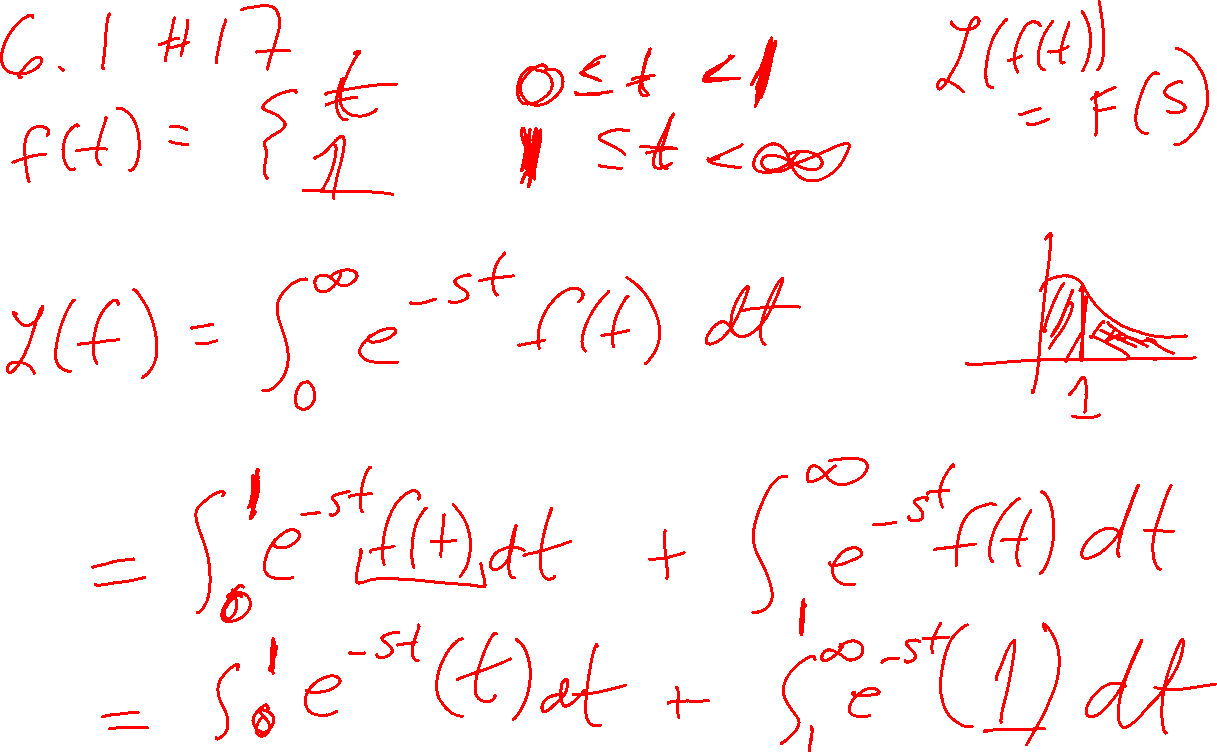 6.1 #17
f(t) = { t 0 ≤ t < 1
1 1 ≤ t < ∞
ℒ(f(t))
= F(s)
ℒ(f) = ∫₀^∞ e^{-st} f(t) dt
1
= ∫₀^1 e^{-st} f(t) dt + ∫₁^∞ e^{-st} f(t) dt
= ∫₀^1 e^{-st} (t) dt + ∫₁^∞ e^{-st} (1) dt